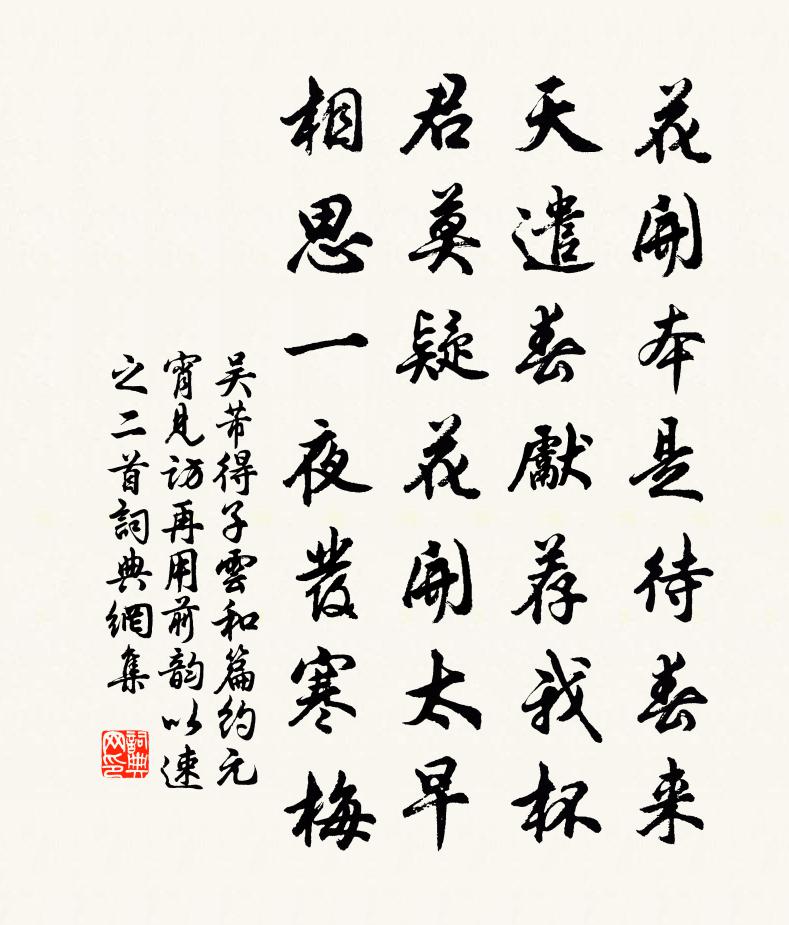 花開本是待春来
天遣春獻荐我杯
君莫疑花開太早
相思一夜發寒梅
吴芾得子雲和篇約元
宵見訪再用前韵以速
之二首詞典網集
詞典网印